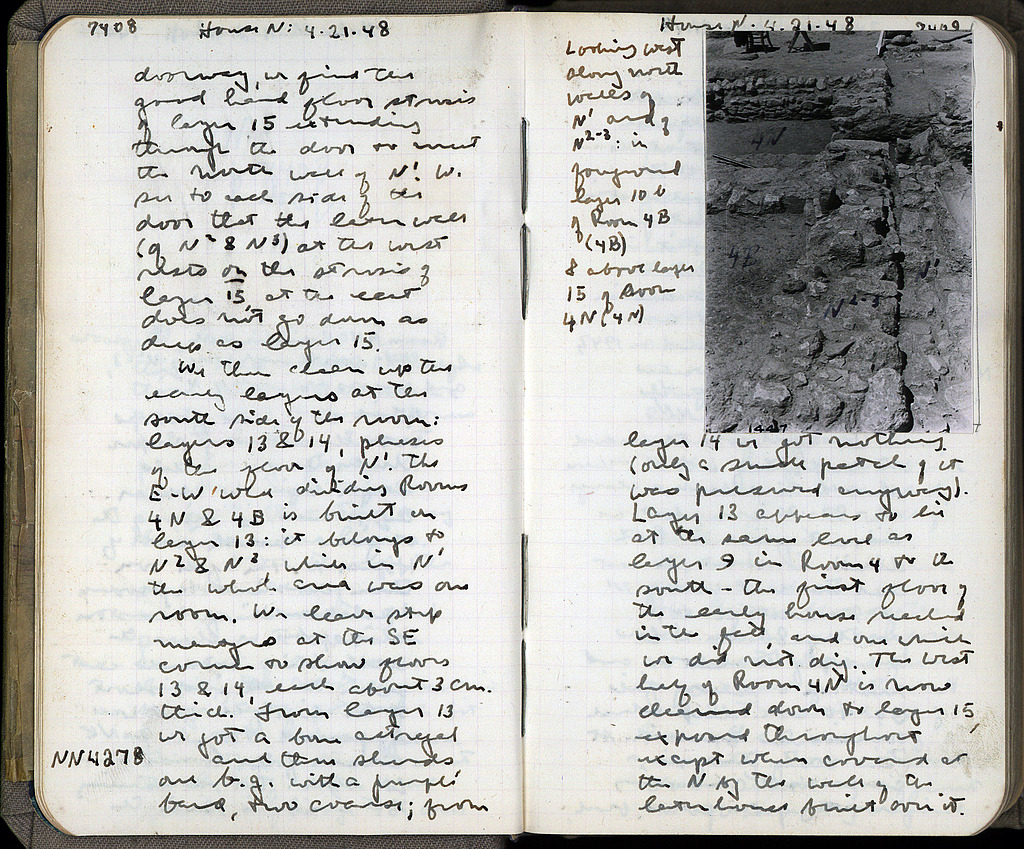 7408 House N: 4.21.48
doorway, we find the
good hard floor strosis
of layer 15 extending
through the door to meet
the north wall of N¹. W.
see to each side of the
door that the later walls
(of N² & N³) at the west
rests on the strosis of
layer 15, at the east
does not go down as
deep as layer 15.
We then clean up the
early layers at the
south side of the room:
layers 13 & 14, phases
of the floor of N¹. The
E-W wall dividing Rooms
4N & 4B is built on
layer 13: it belongs to
N² & N³ while in N¹
the whole area was one
room. We leave strip
at the SE
corner to show floors
13 & 14 each about 3 cm.
thick. From layer 13
we got a bone astragal
NN4278
and three sherds
one b.g. with a purple
band, two coarse; from
House N. 4.21.48 7409
Looking west
along north
walls of
N¹ and of
N²⁻³: in
foreground
layer 10 b
of Room 4B
(4B)
& above layer
15 of Room
4N (4N)
4N
N¹
N²⁻³
layer 14 we got nothing
(only a small patch of it
was preserved anyway).
Layer 13 appears to be
at the same level as
layer 9 in Room 4 to the
south – the first floor of
the early house reached
in the and one which
we did not dig. The west
half of Room 4N is now
cleared down to layer 15
exposed throughout
except when covered at
the N by the wall of the
later house built over it.